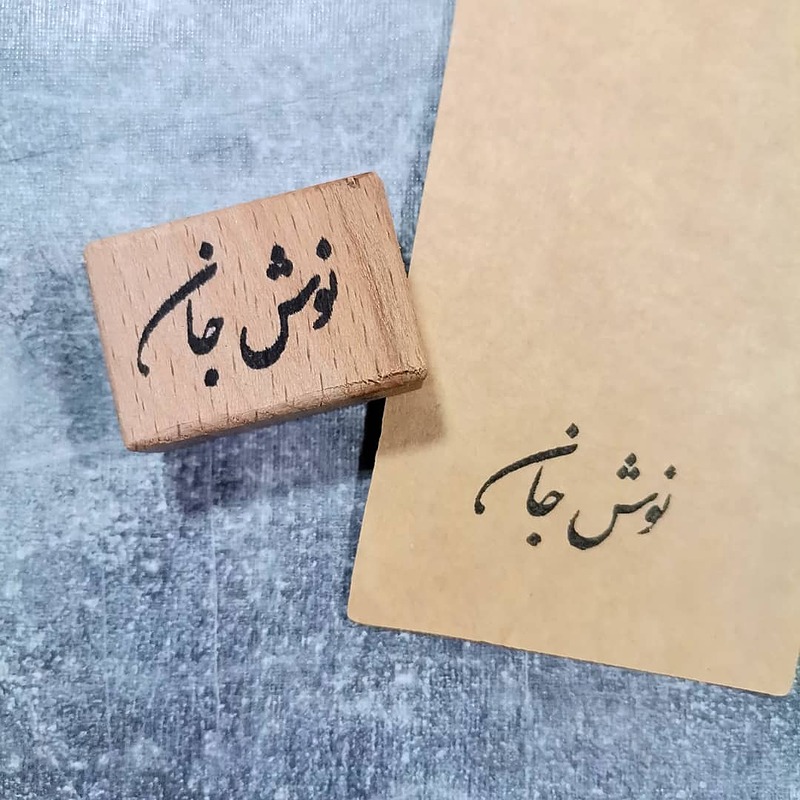 نوش جان
نوش جان